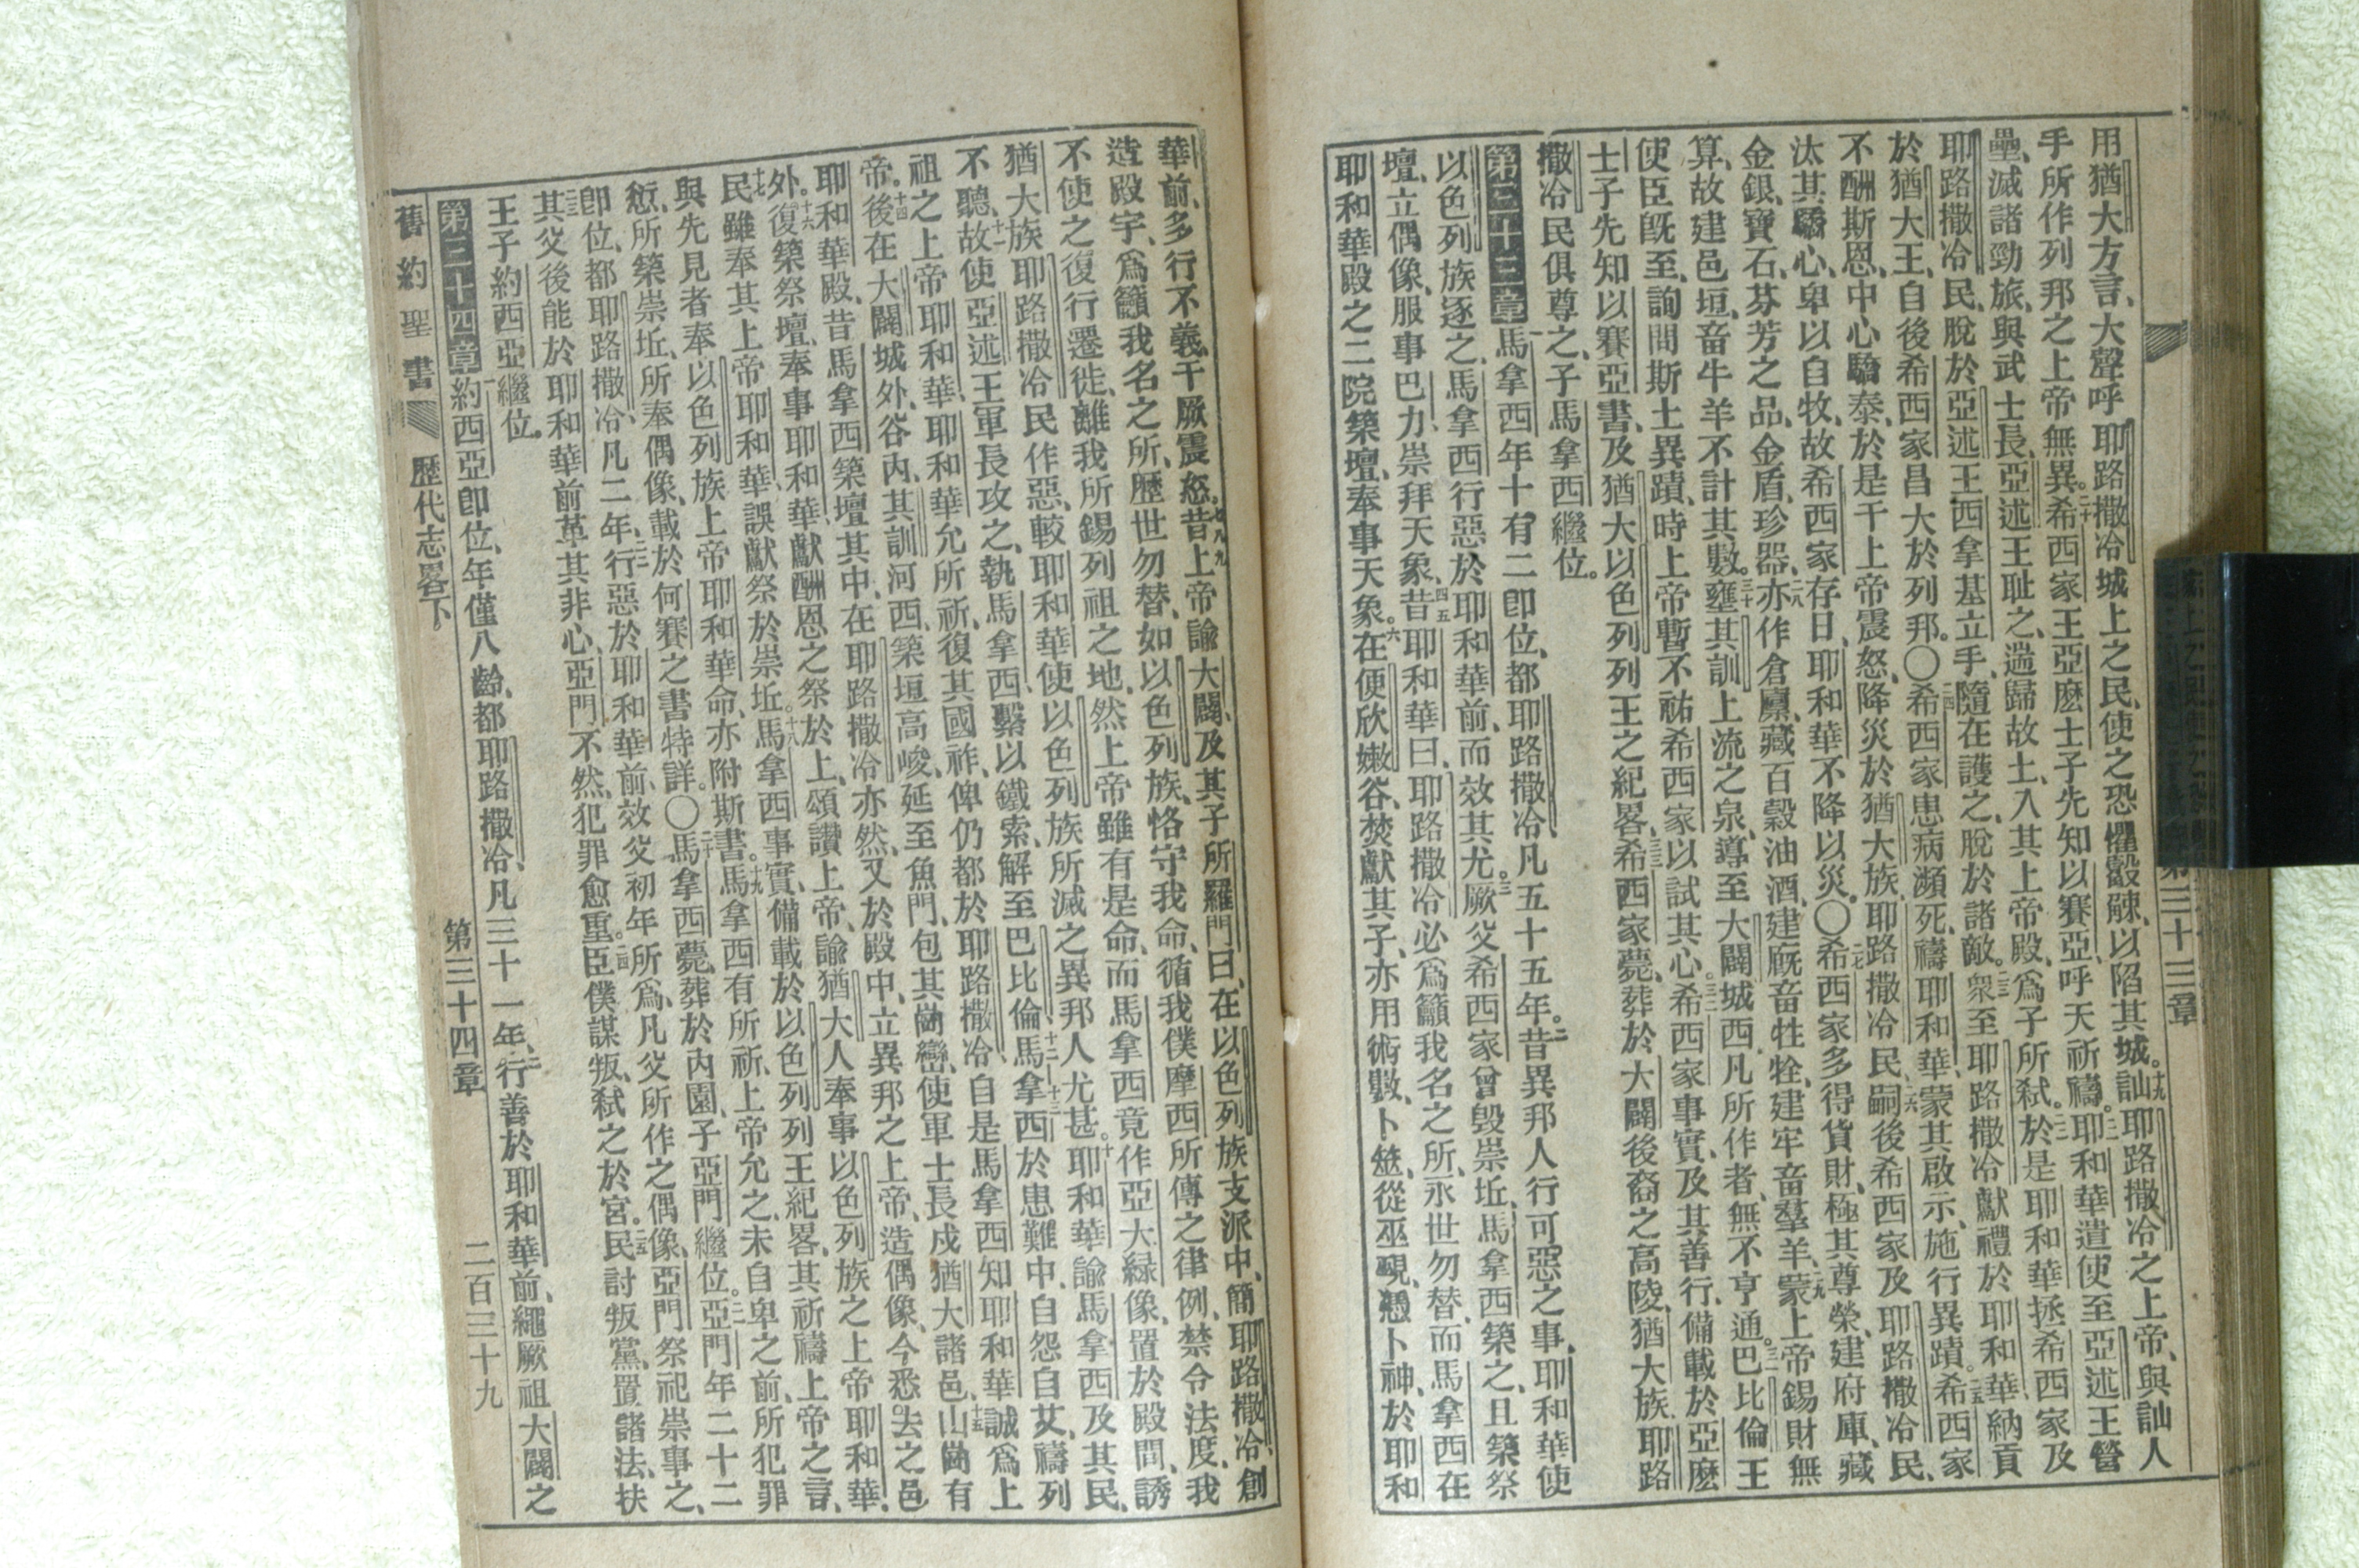 用猶大方言、大聲呼耶路撒冷城上之民、使之恐懼觳觫、以陷其城。十九訕耶路撒冷之上帝、與訕人
手所作列邦之上帝無異。二十希西家王亞麽士子先知以賽亞、呼天祈禱。二一耶和華遣使至亞述王營
壘、滅諸勁旅、與武士長、亞述王耻之、遄歸故土、入其上帝殿、爲子所弒。二二於是耶和華拯希西家及
耶路撒冷民、脫於亞述王西拿基立手、隨在護之、脫於諸敵。二三衆至耶路撒冷獻禮於耶和華、納貢
於猶大王、自後希西家昌大於列邦。〇二四希西家患病瀕死、禱耶和華、蒙其啟示、施行異蹟。二五希西家
不酬斯恩、中心驕泰、於是干上帝震怒、降災於猶大族、耶路撒冷民、二六嗣後希西家及耶路撒冷民、
汰其驕心、卑以自牧、故希西家存日、耶和華不降以災。〇二七希西家多得貨財、極其尊榮、建府庫、藏
金銀、寶石、芬芳之品、金盾、珍器、二八亦作倉廩、藏百穀油酒、建廐畜牲牷、建牢畜羣羊、二九蒙上帝錫財無
算、故建邑垣、畜牛羊不計其數。三十壅其訓上流之泉、導至大闢城西、凡所作者、無不亨通。三一巴比倫王
使臣旣至、詢問斯土異蹟、時上帝暫不祐希西家以試其心。三二希西家事實、及其善行、備載於亞麽
士子先知以賽亞書、及猶大以色列列王之紀畧、三三希西家薨、葬於大闢後裔之高陵、猶大族、耶路
撒冷民俱尊之、子馬拿西繼位。
第三十三章一馬拿西年十有二卽位、都耶路撒冷、凡五十五年。二昔異邦人行可惡之事、耶和華使
以色列族逐之、馬拿西行惡於耶和華前、而效其尤。三厥父希西家曾毀崇坵、馬拿西築之、且築祭
壇、立偶像、服事巴力、崇拜天象、四五昔耶和華曰、耶路撒冷必爲籲我名之所、永世勿替、而馬拿西在
耶和華殿之二院築壇、奉事天象。六在便欣嫩谷、焚獻其子、亦用術數、卜筮、從巫覡、憑卜神、於耶和
第三十三章
華前、多行不義、干厥震怒。七八九昔上帝諭大闢、及其子所羅門曰、在以色列族支派中、簡耶路撒冷、創
造殿宇、爲籲我名之所、歷世勿替、如以色列族、恪守我命、循我僕摩西所傳之律例、禁令法度、我
不使之復行遷徙、離我所錫列祖之地、然上帝雖有是命、而馬拿西竟作亞大緑像、置於殿間、誘
猶大族耶路撒冷民作惡、較耶和華使以色列族所滅之異邦人尤甚。十耶和華諭馬拿西及其民、
不聽、十一故使亞述王軍長攻之、執馬拿西、繫以鐵索、解至巴比倫、十二十三馬拿西於患難中、自怨自艾、禱列
祖之上帝耶和華、耶和華允所祈、復其國祚、俾仍都於耶路撒冷、自是馬拿西知耶和華誠爲上
帝。十四後在大闢城外、谷內、其訓河西、築垣高峻、延至魚門、包其崗巒、使軍士長戍猶大諸邑、十五山崗有
耶和華殿、昔馬拿西築壇其中、在耶路撒冷亦然、又於殿中、立異邦之上帝、造偶像、今悉去之邑
外。十六復築祭壇、奉事耶和華、獻酬恩之祭於上、頌讚上帝、諭猶大人奉事以色列族之上帝耶和華、
十七民雖奉其上帝耶和華、誤獻祭於崇坵。十八馬拿西事實、備載於以色列列王紀畧、其祈禱上帝之言、
與先見者奉以色列族上帝耶和華命、亦附斯書。十九馬拿西有所祈、上帝允之、未自卑之前、所犯罪
愆、所築崇坵、所奉偶像、載於何賽之書特詳。〇二十馬拿西薨、葬於內園、子亞門繼位。二一亞門年二十二
卽位、都耶路撒冷、凡二年、二二行惡於耶和華前、效父初年所爲、凡父所作之偶像、亞門祭祀崇事之、
二三其父後能於耶和華前革其非心、亞門不然、犯罪愈重。二四臣僕謀叛、弒之於宮。二五民討叛黨、置諸法、扶
王子約西亞繼位。
第三十四章一約西亞卽位、年僅八齡、都耶路撒冷、凡三十一年、二行善於耶和華前、繩厥祖大闢之
舊約聖書 歷代志畧下。 第三十四章 二百三十九